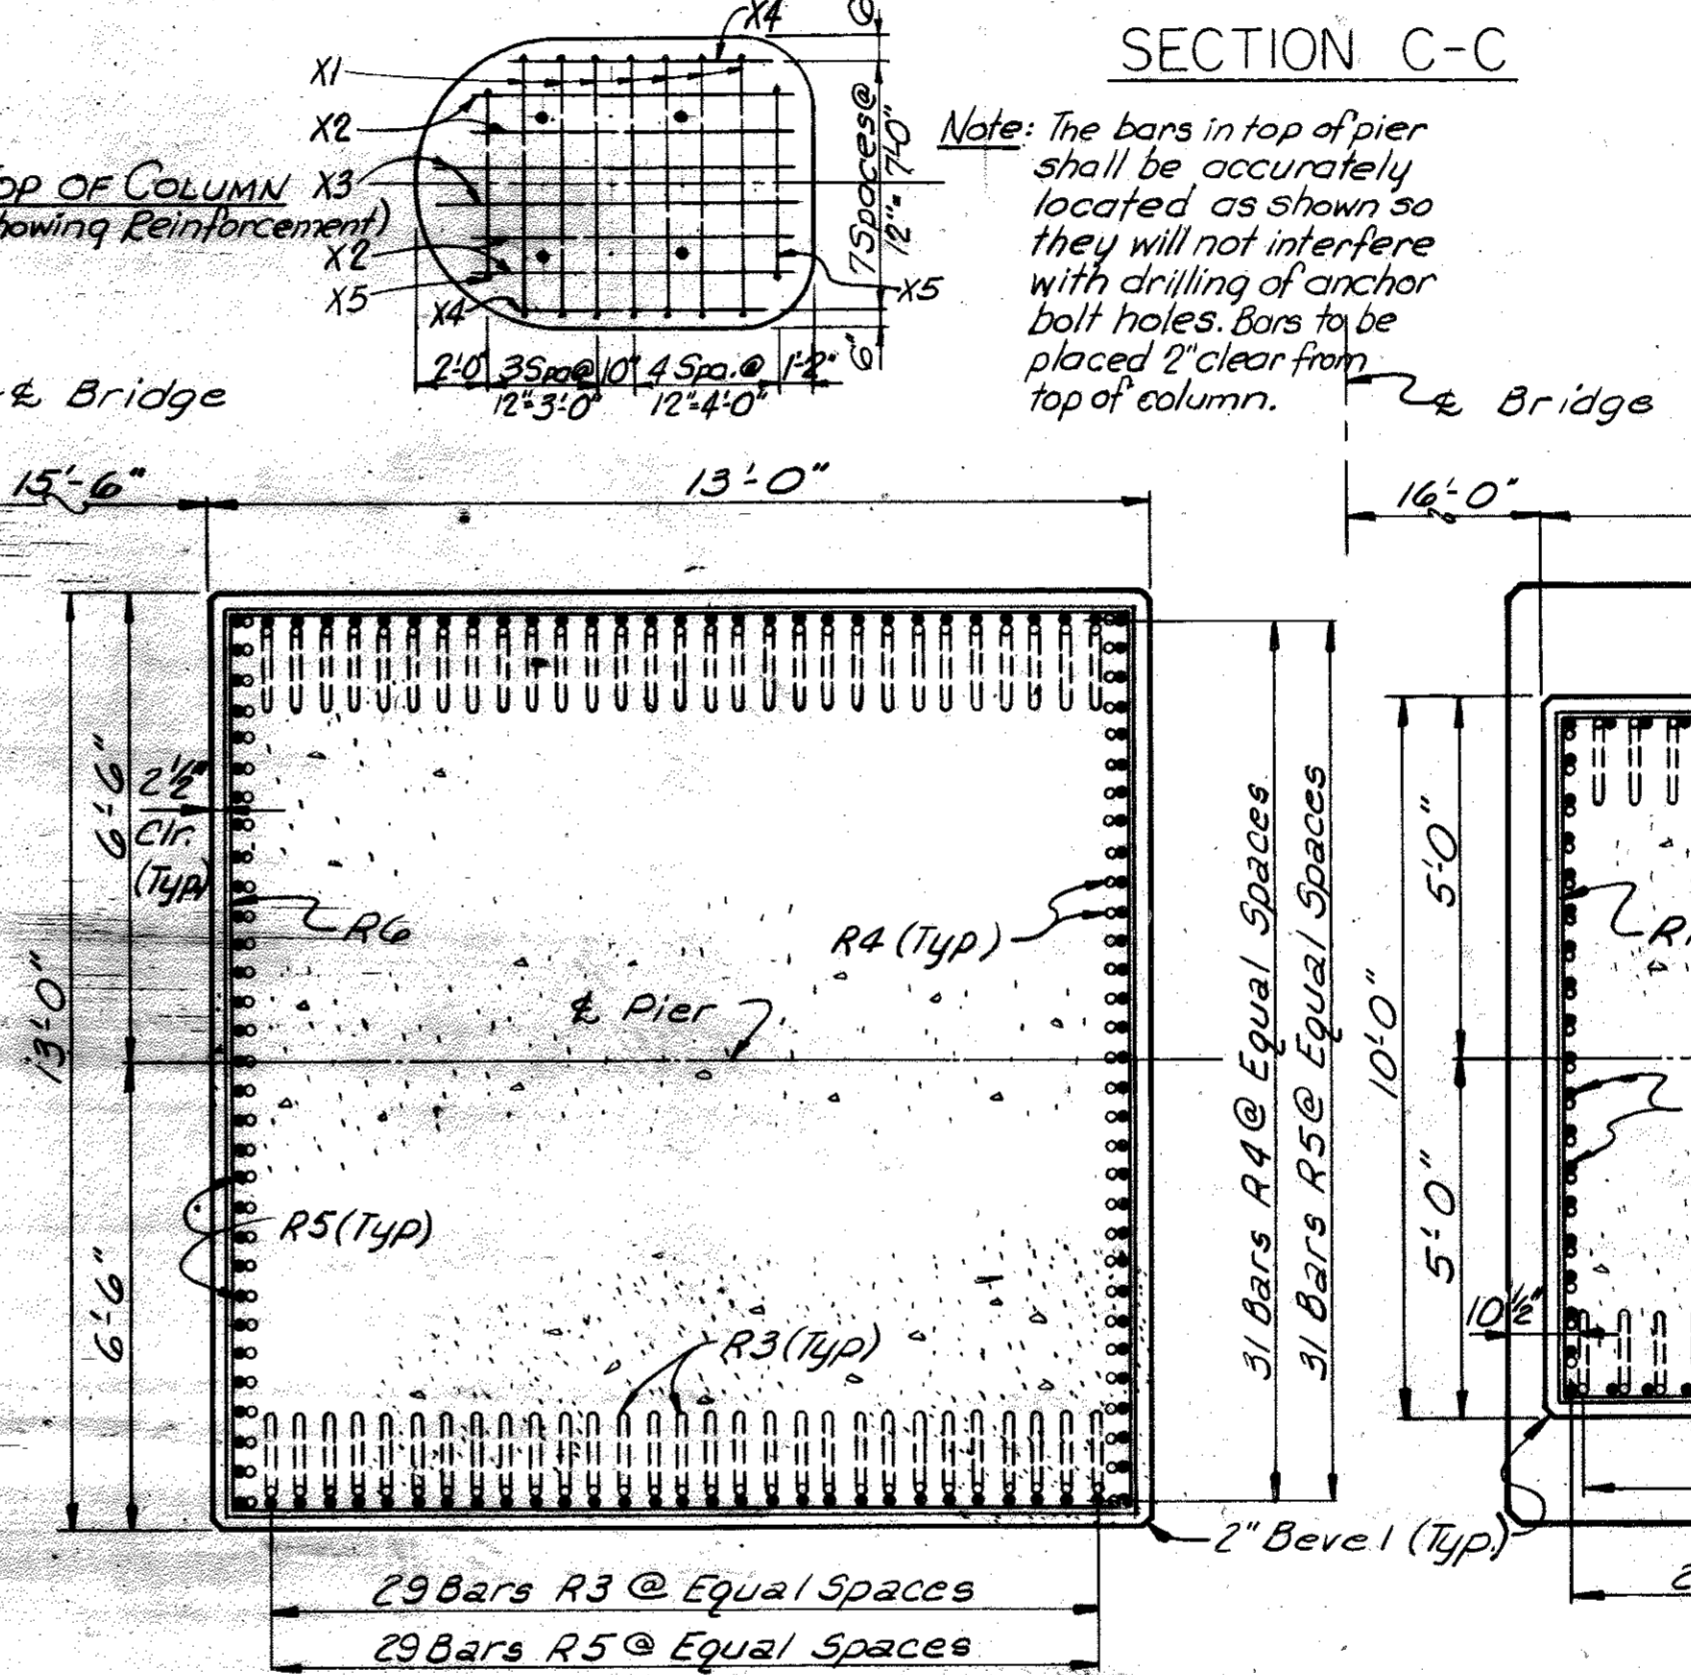 SECTION C-C
X4
X1
X2
X3
X2
X5
X4
X5
TOP OF COLUMN
(Showing Reinforcement)
7 Spaces @
12"= 7'-0"
6"
2'-0"
3 Spa@
12"=3'-0"
10"
4 Spa.@
12"=4'-0"
1'-2"
Note: The bars in top of pier
shall be accurately
located as shown so
they will not interfere
with drilling of anchor
bolt holes. Bars to be
placed 2" clear from
top of column.
℄ Bridge
℄ Bridge
15'-6"
13'-0"
16'-0"
13'-0"
6'-6"
6'-6"
2½"
Clr.
(Typ)
R6
R4 (Typ)
℄ Pier
R5 (Typ)
R3 (Typ)
31 Bars R4 @ Equal Spaces
31 Bars R5 @ Equal Spaces
10'-0"
5'-0"
5'-0"
10½"
2" Bevel (Typ.)
29 Bars R3 @ Equal Spaces
29 Bars R5 @ Equal Spaces